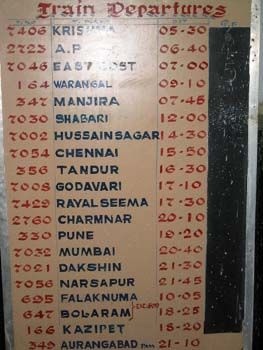 Train Departures
7406 KRISHNA 05-30
2723 A.P 06-40
7046 EAST COST 07-00
164 WARANGAL 09-10
347 MANJIRA 07-45
7030 SHABARI 12-00
7002 HUSSAINSAGAR 14-30
7054 CHENNAI 15-50
356 TANDUR 16-30
7008 GODAVARI 17-10
7429 RAYALSEEMA 17-30
2760 CHARMNAR 20-10
330 PUNE 19-20
7032 MUMBAI 20-40
7021 DAKSHIN 21-10
7056 NARSAPUR 21-45
695 FALAKNUMA 10-05
647 BOLARAM 18-25
166 KAZIPET 18-20
349 AURANGABAD Pass 21-10